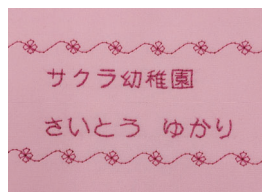 サクラ幼稚園
さいとう ゆかり